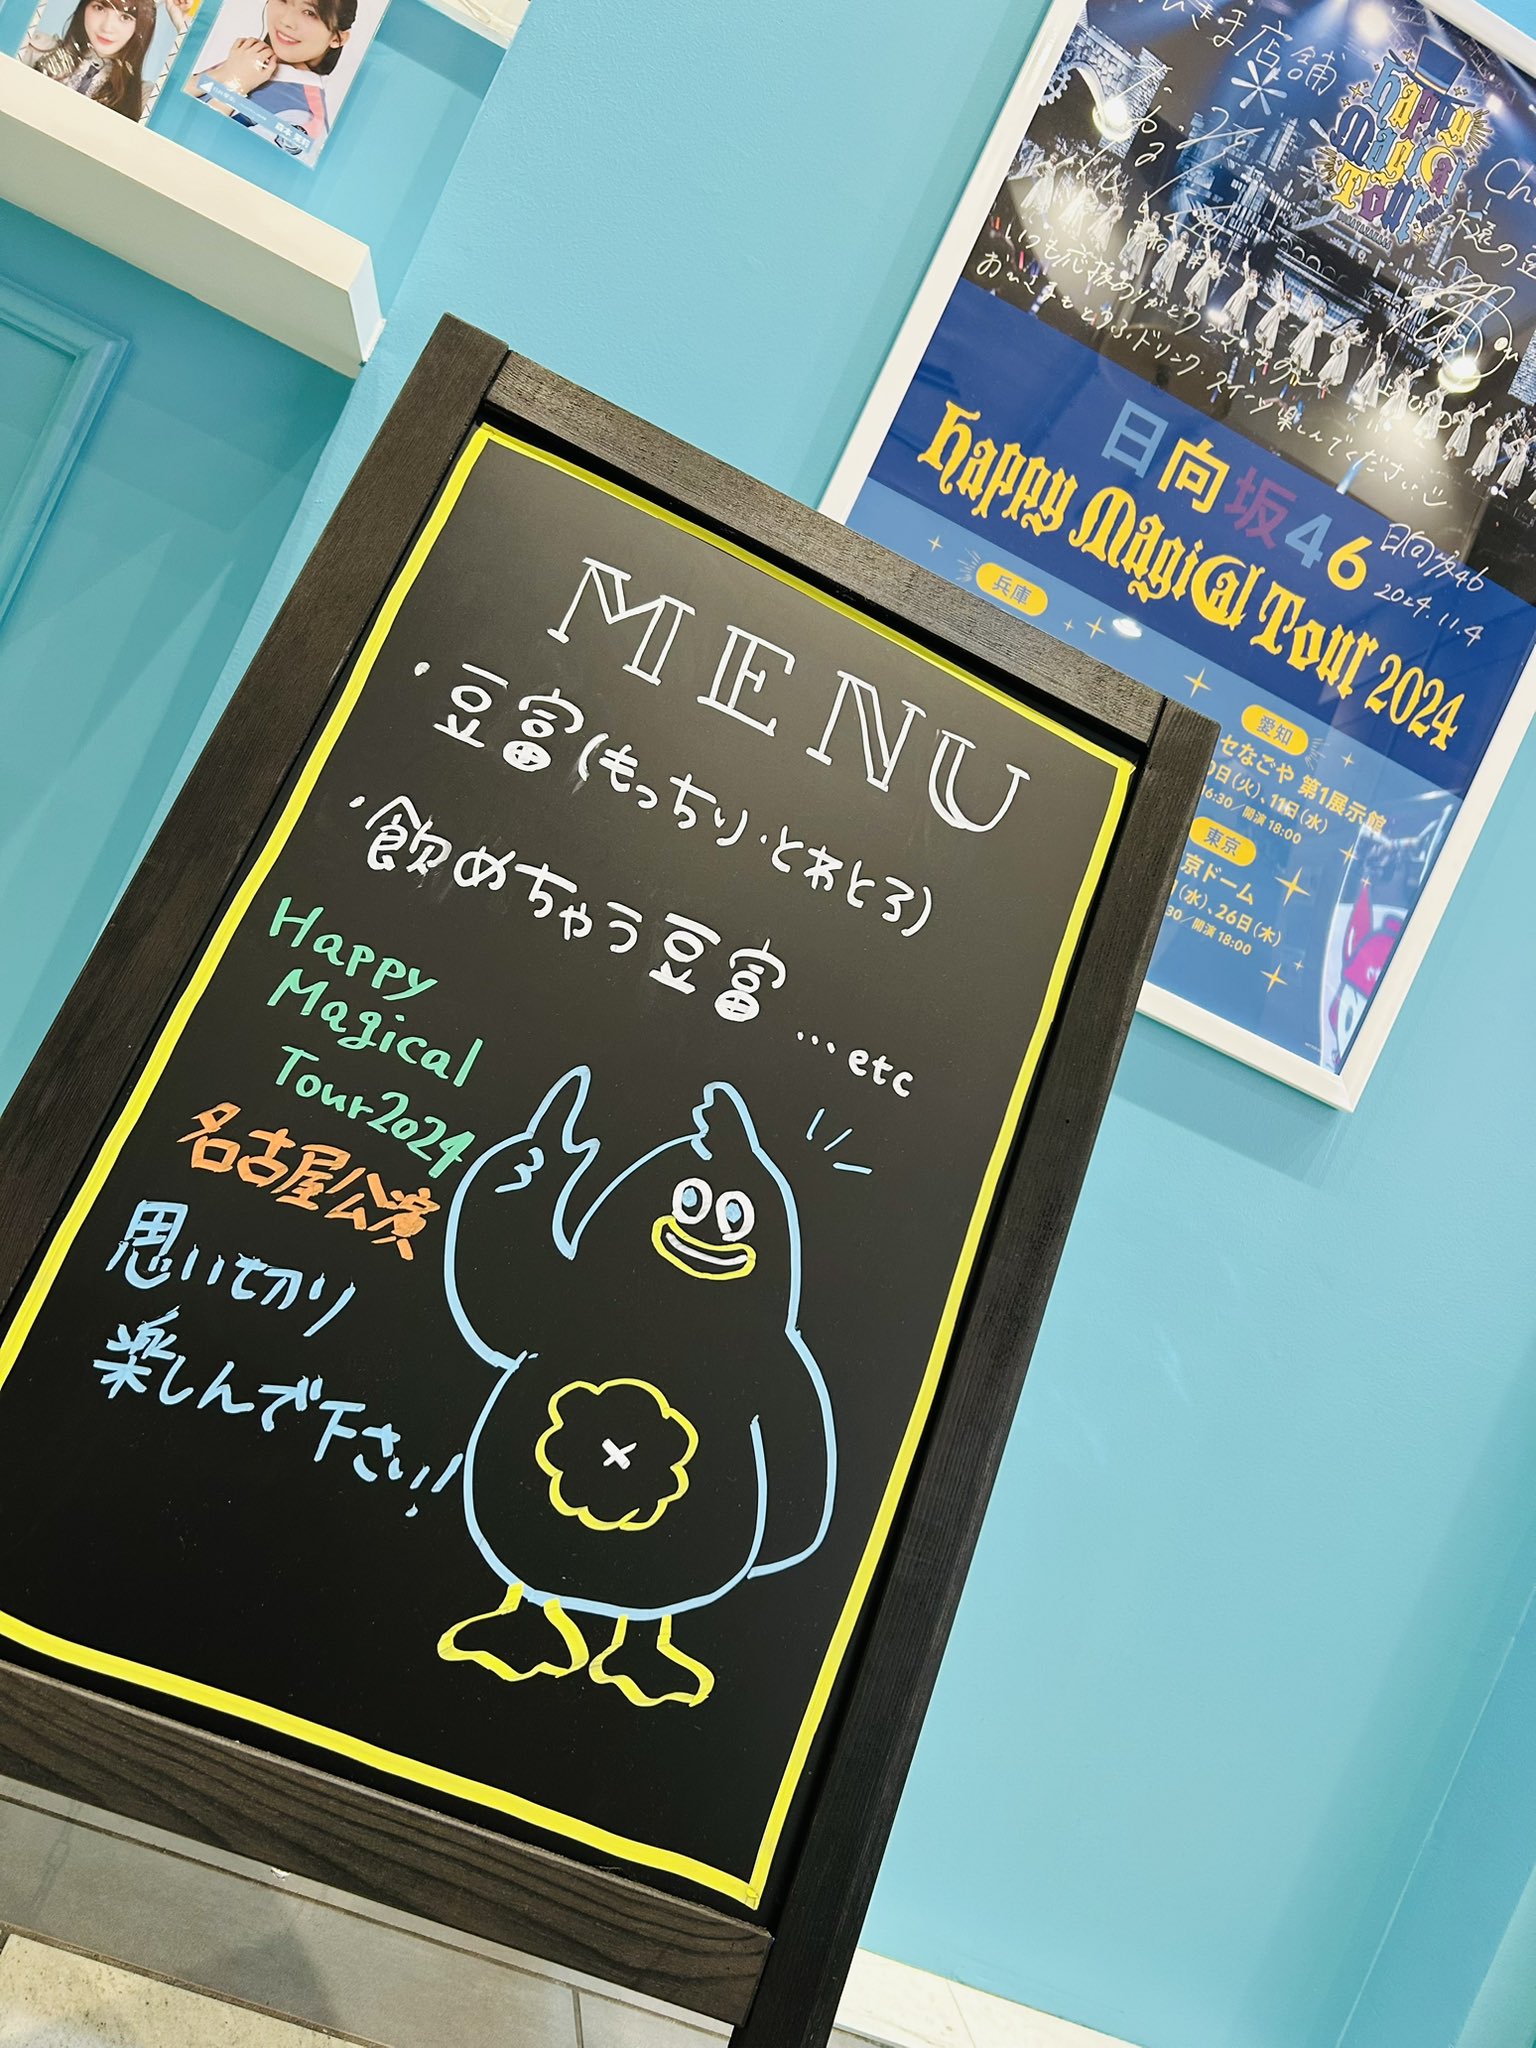 MENU
・豆富(もっちり・とわとろ)
・飲めちゃう豆富
...etc
Happy
Magical
Tour2024
名古屋公演
思い切り
楽しんで下さい!
店舗
Happy
Magical
Tour
永遠の
いつも応援ありがとうございます
とうふドリンク・スイーツ楽しんでください
日向坂46
2024.11.4
日向坂46
Happy Magical Tour 2024
兵庫
愛知
セなごや 第1展示館
0日(火)、11日(水)
16:30/開演 18:00
東京
京ドーム
(水)、26日(木)
30/開演 18:00